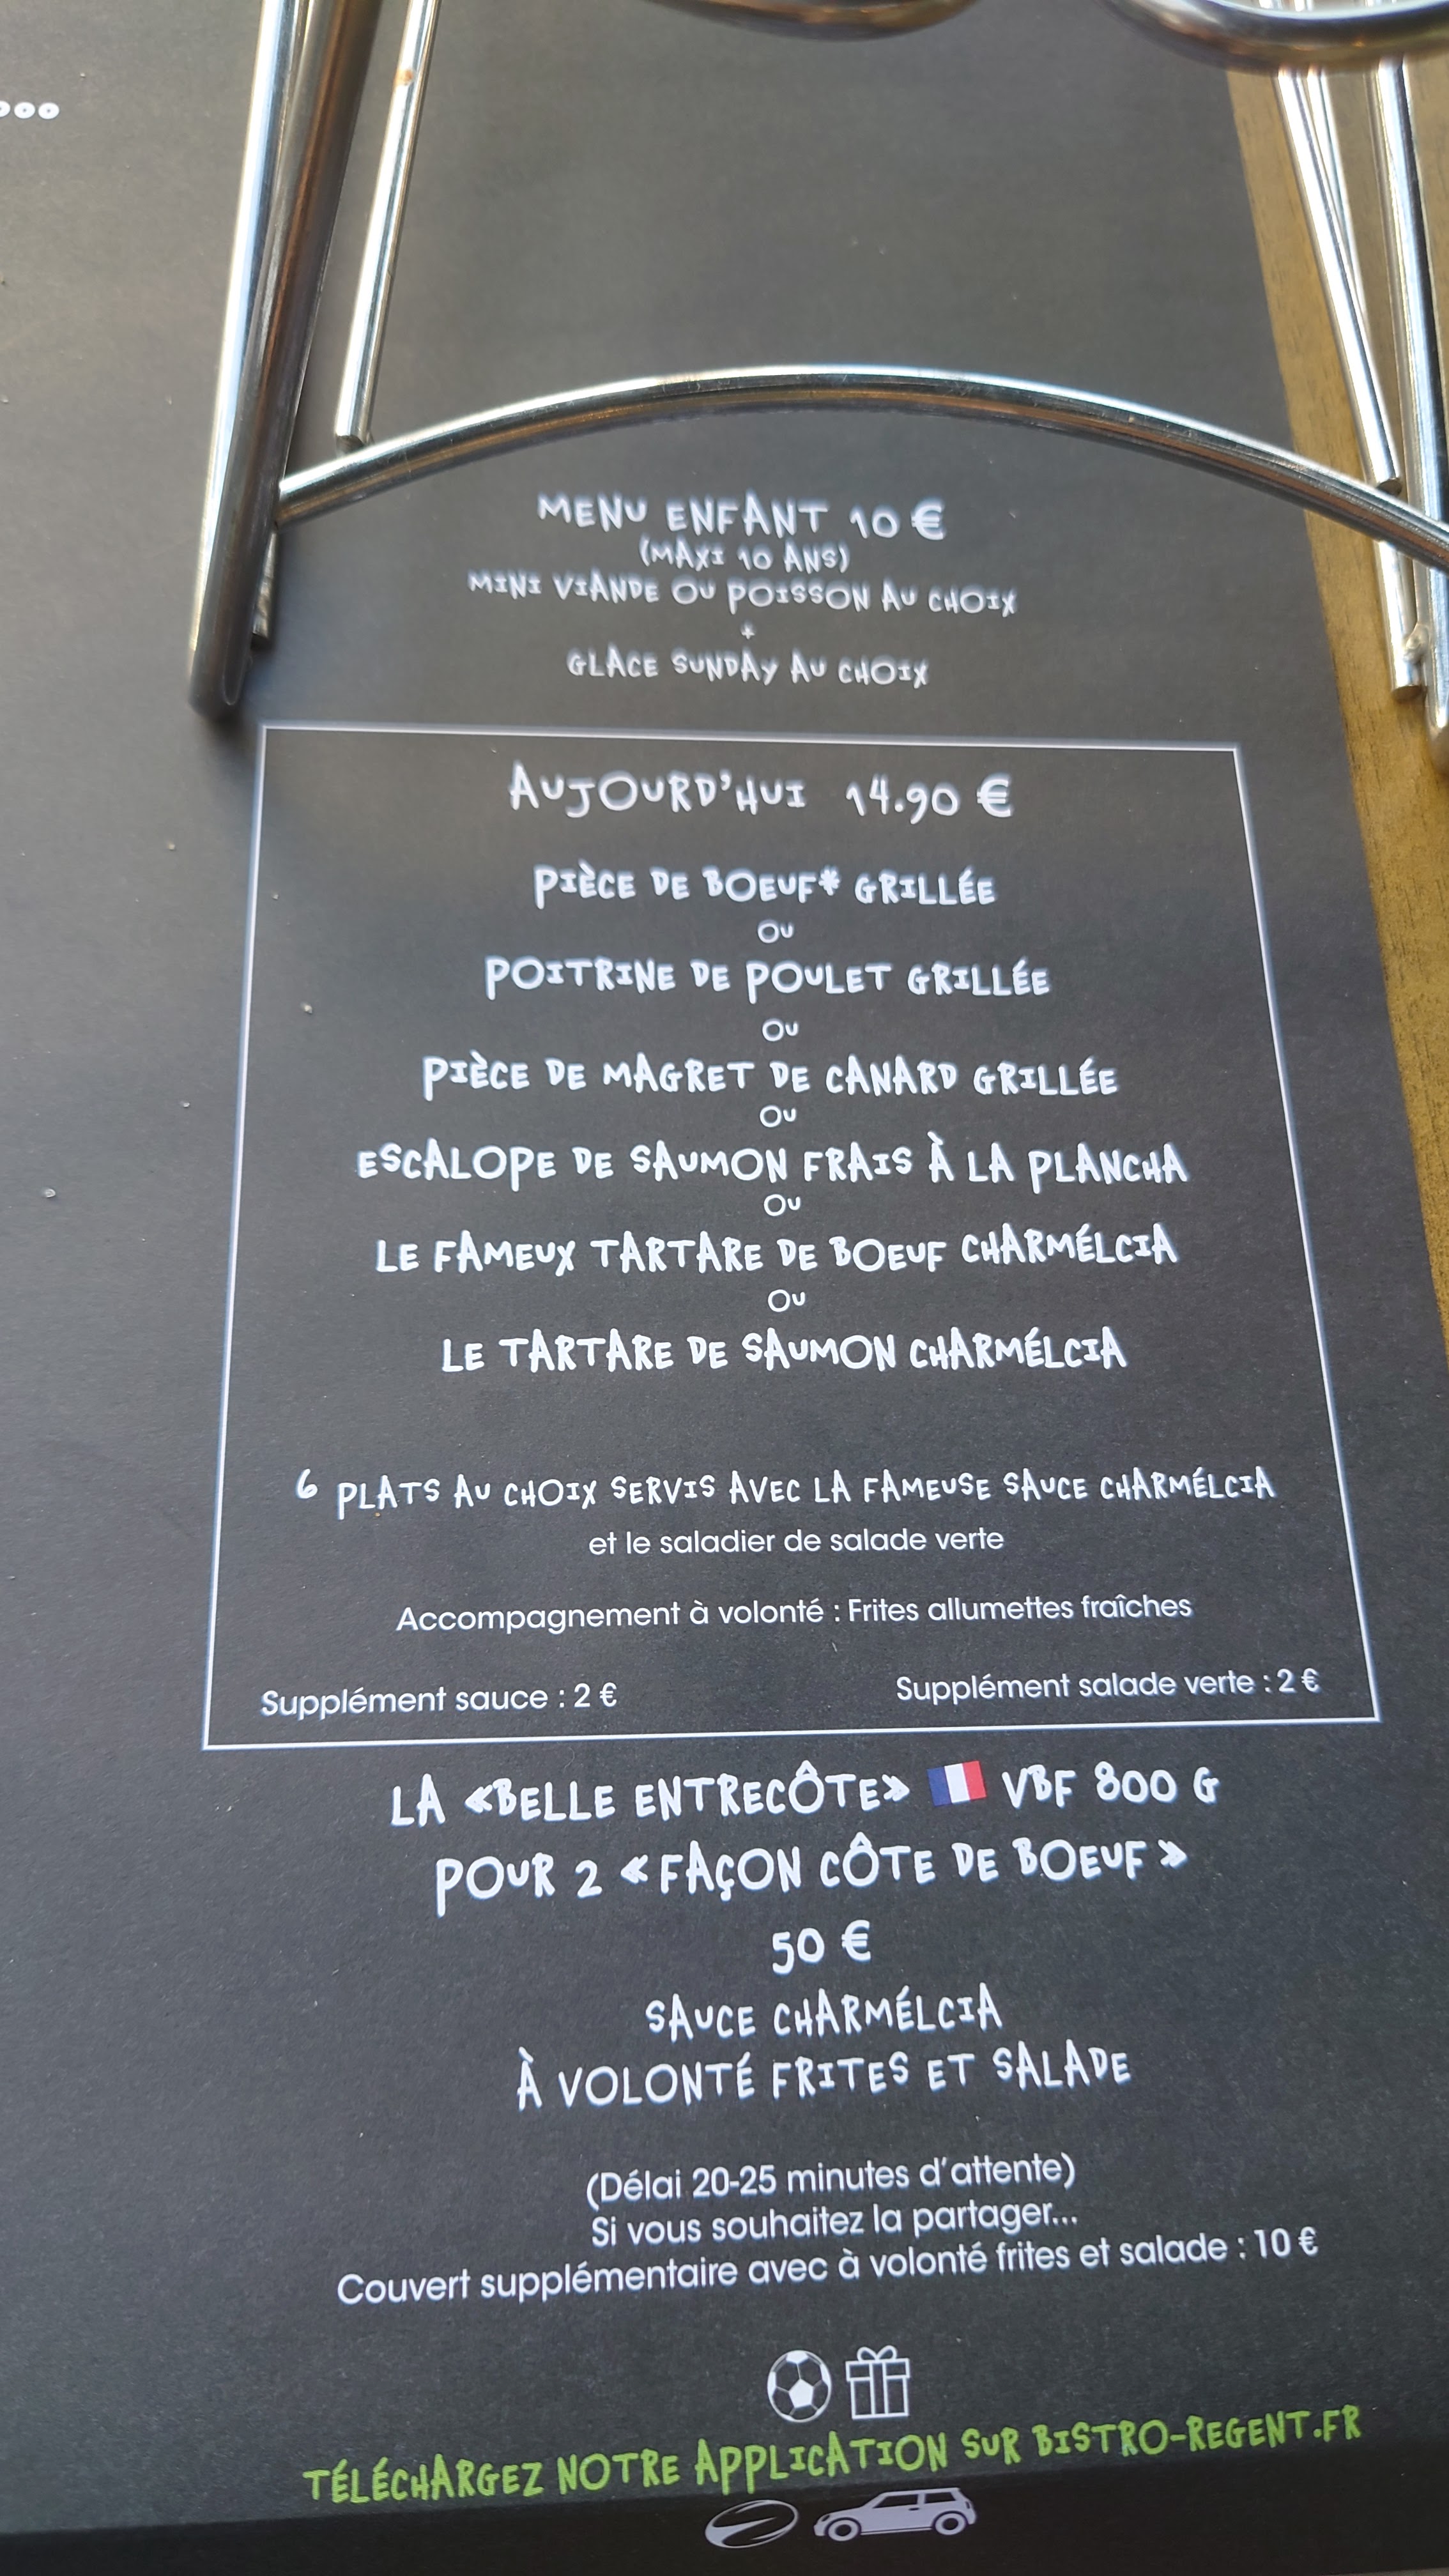 MENU ENFANT 10 €
(MAXI 10 ANS)
MINI VIANDE OU POISSON AU CHOIX
+
GLACE SUNDAY AU CHOIX
AUJOURD'HUI 14.90 €
PIÈCE DE BOEUF* GRILLÉE
OU
POITRINE DE POULET GRILLÉE
OU
PIÈCE DE MAGRET DE CANARD GRILLÉE
OU
ESCALOPE DE SAUMON FRAIS À LA PLANCHA
OU
LE FAMEUX TARTARE DE BOEUF CHARMÉLCIA
OU
LE TARTARE DE SAUMON CHARMÉLCIA
6 PLATS AU CHOIX SERVIS AVEC LA FAMEUSE SAUCE CHARMÉLCIA
et le saladier de salade verte
Accompagnement à volonté : Frites allumettes fraîches
Supplément sauce : 2 € Supplément salade verte : 2 €
LA «BELLE ENTRECÔTE» VBF 800 G
POUR 2 « FAÇON CÔTE DE BOEUF »
50 €
SAUCE CHARMÉLCIA
À VOLONTÉ FRITES ET SALADE
(Délai 20-25 minutes d'attente)
Si vous souhaitez la partager...
Couvert supplémentaire avec à volonté frites et salade : 10 €
TÉLÉCHARGEZ NOTRE APPLICATION SUR BISTRO-REGENT.FR